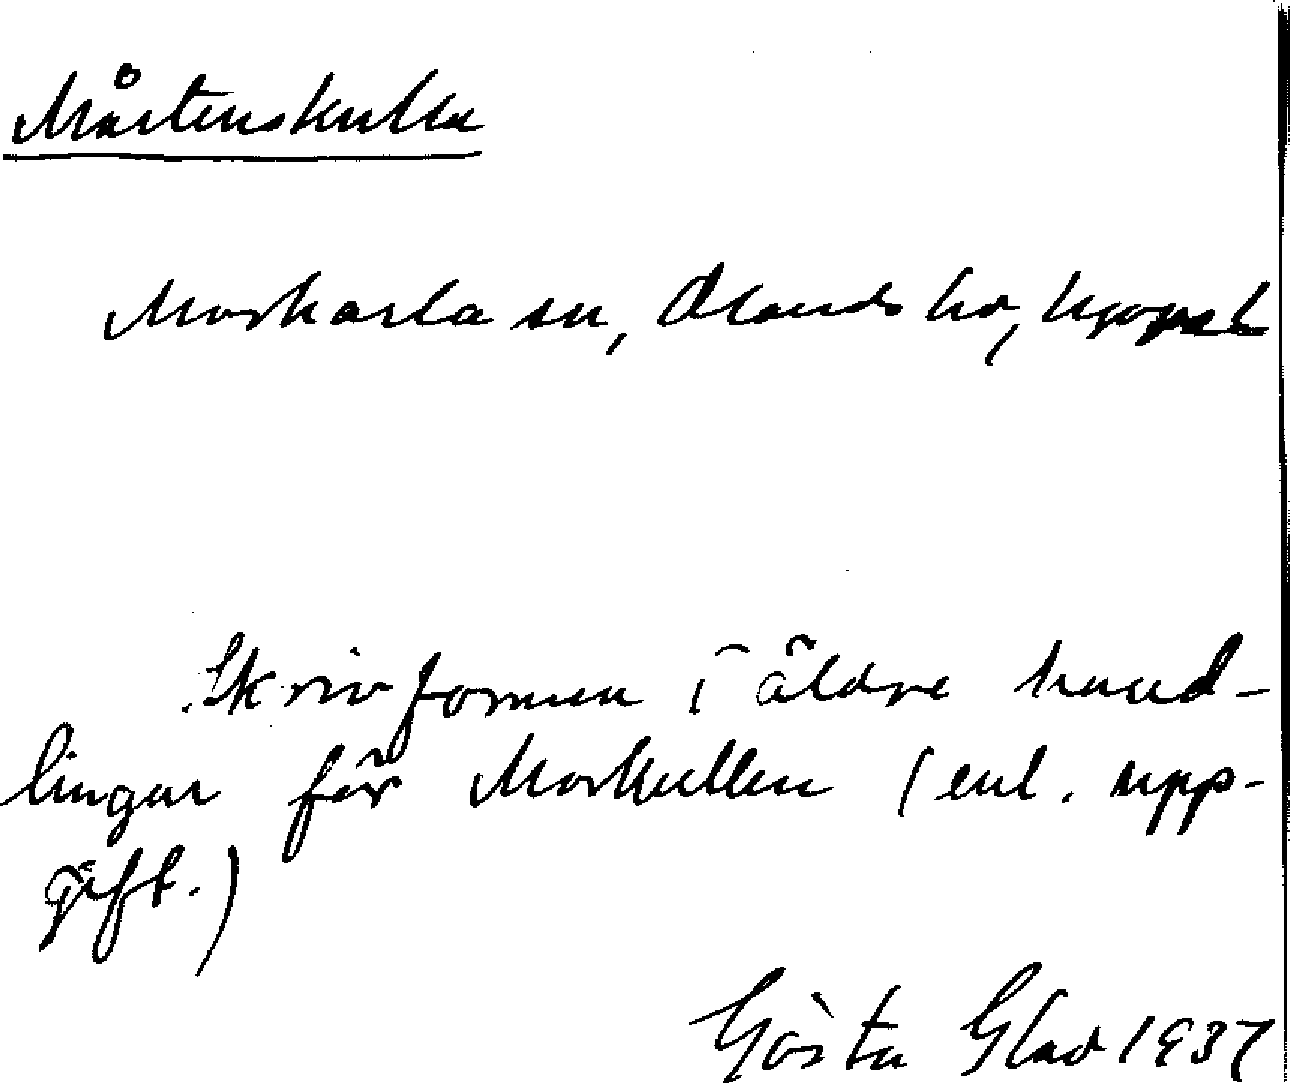 Mårtenskulla
Morkarla sn, Olands hd, Uppl
Skrivformen i äldre hand-
lingar för Morkullen (enl. upp-
gift.)
Gösta Glad 1937